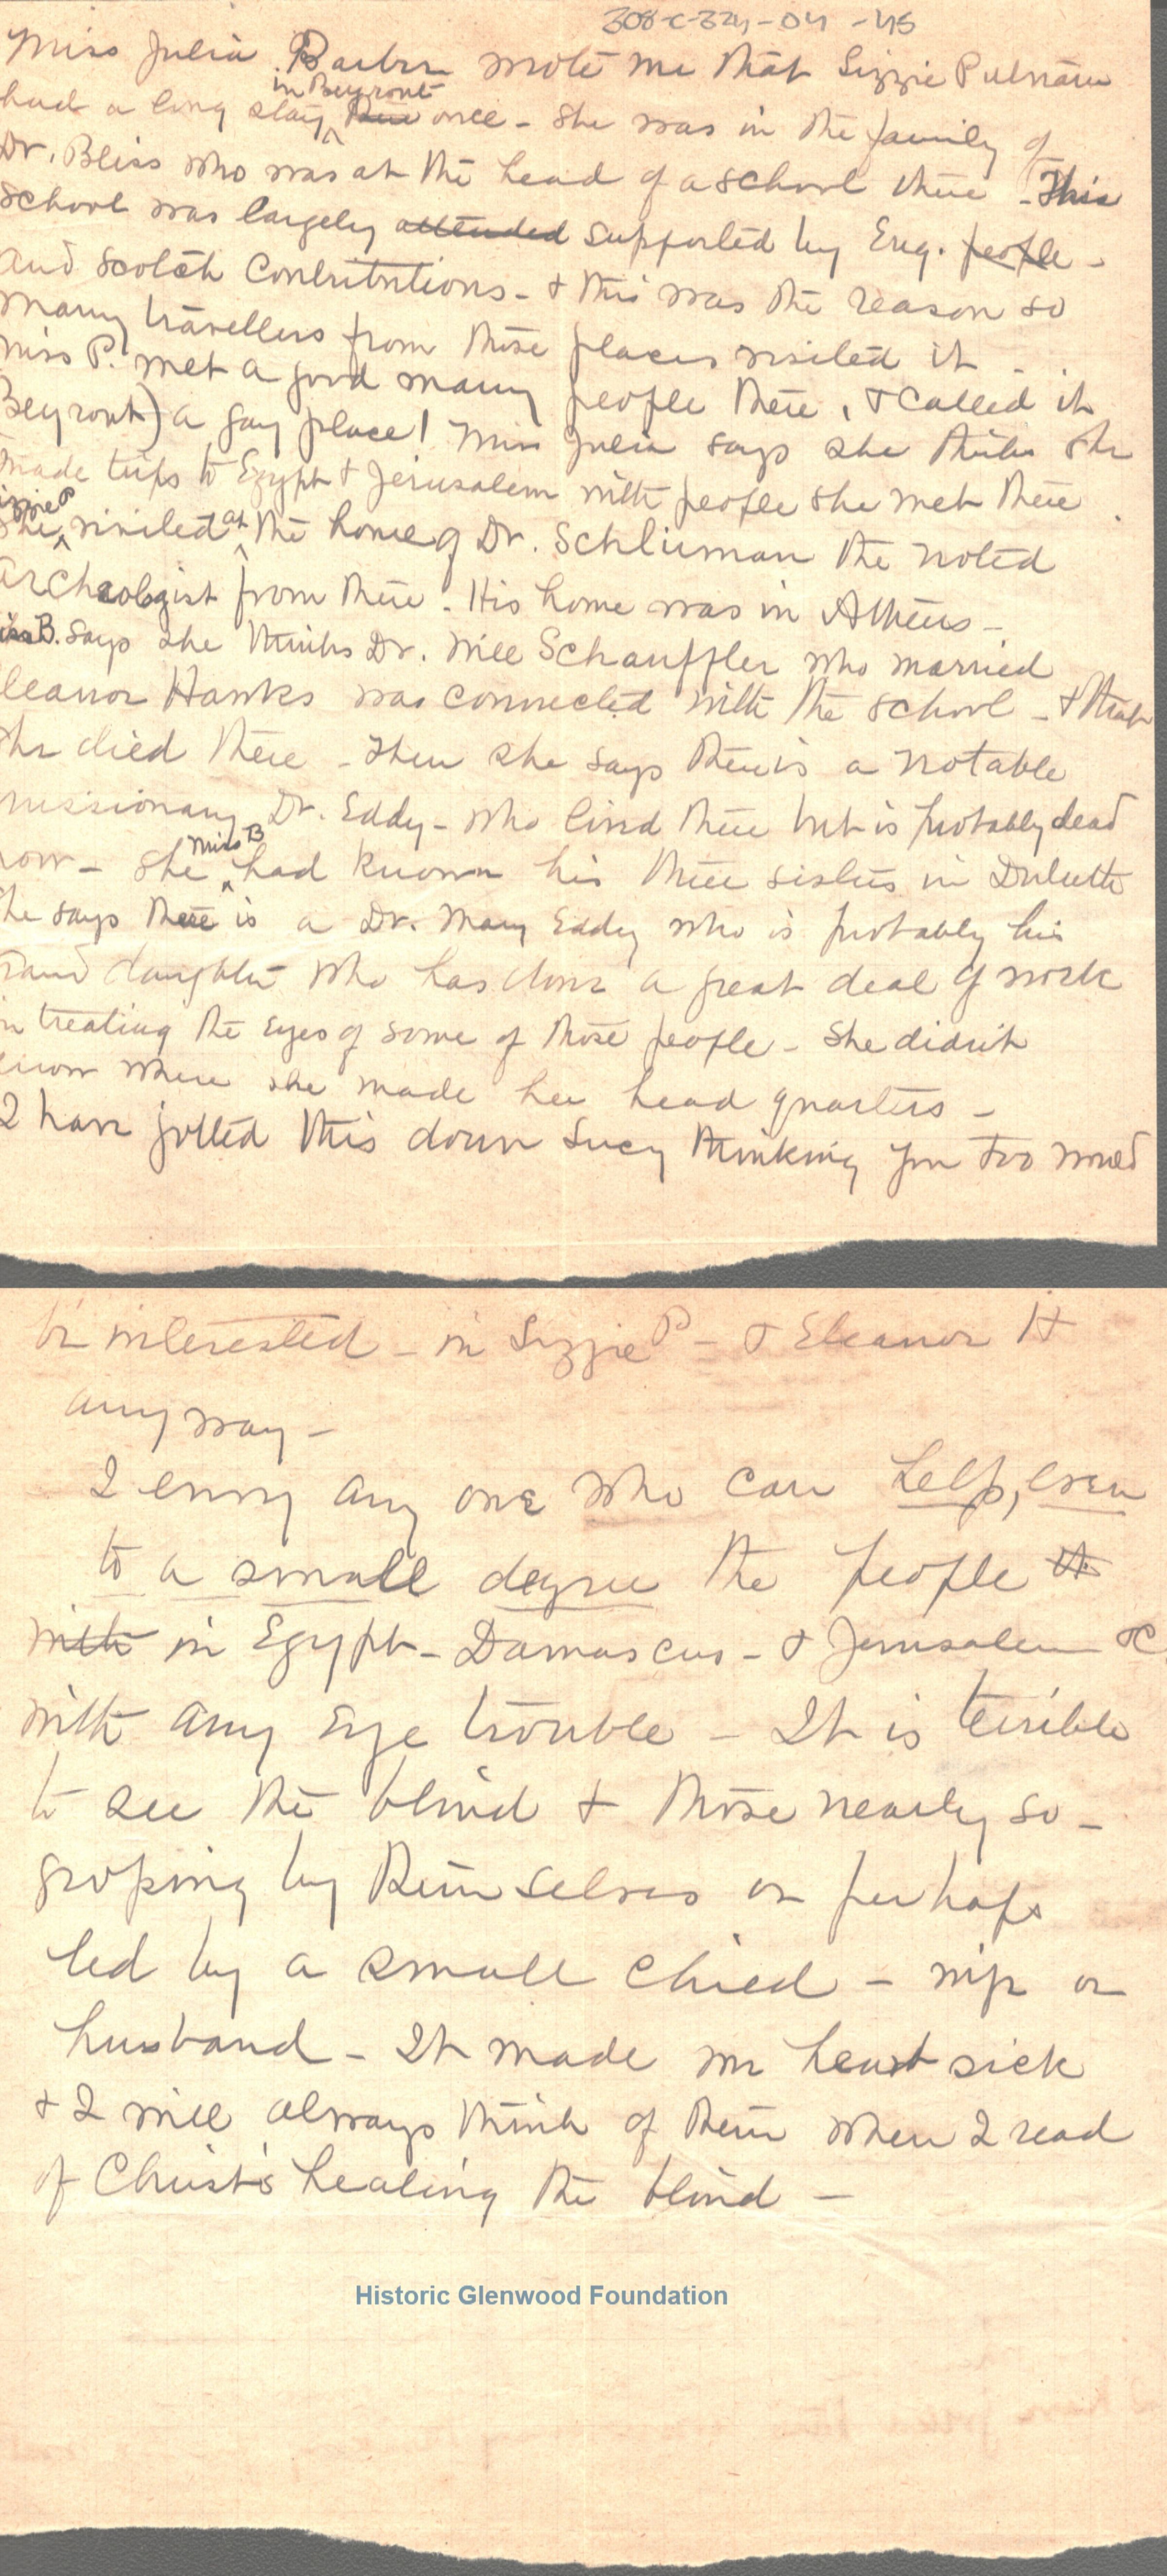 308-C-324-04 -45
Miss Julia Barber wrote me that Lizzie Putnam
in Beyrout
had a long stay there once - She was in the family of
Dr. Bliss who was at the head of a school there - This
School was largely attended supported by Eng. people -
and Scotch Contributions - & this was the reason so
many travellers from those places visited it -
Miss P. met a good many people there, & called it
Beyrout) a gay place! Miss Julia says she thinks she
made trips to Egypt & Jerusalem with people she met there.
izzie P at
She visited the home of Dr. Schlieman the noted
Archaeologist from there. His home was in Athens -
iss B. says she thinks Dr. Will Schauffler who married
leanor Hawks was connected with the school - & that
she died there - Then she says there is a notable
missionary Dr. Eddy - who lived there but is probably dead
Miss B
now - She had known his three sisters in Duluth
he says there is a Dr. Mary Eddy who is probably his
rand daughter who has done a great deal of work
in treating the eyes of some of those people - She didn't
know where she made her head quarters -
I have jotted this down Lucy thinking you too would
be interested - in Lizzie P - & Eleanor H
any way -
I envy any one who can help, even
to a small degree the people
with in Egypt - Damascus - & Jerusalem &c
with any eye trouble - It is terrible
to see the blind & those nearly so -
groping by themselves or perhaps
led by a small child - wife or
husband - It made me heart sick
& I will always think of them when I read
of Christ's healing the blind -
Historic Glenwood Foundation